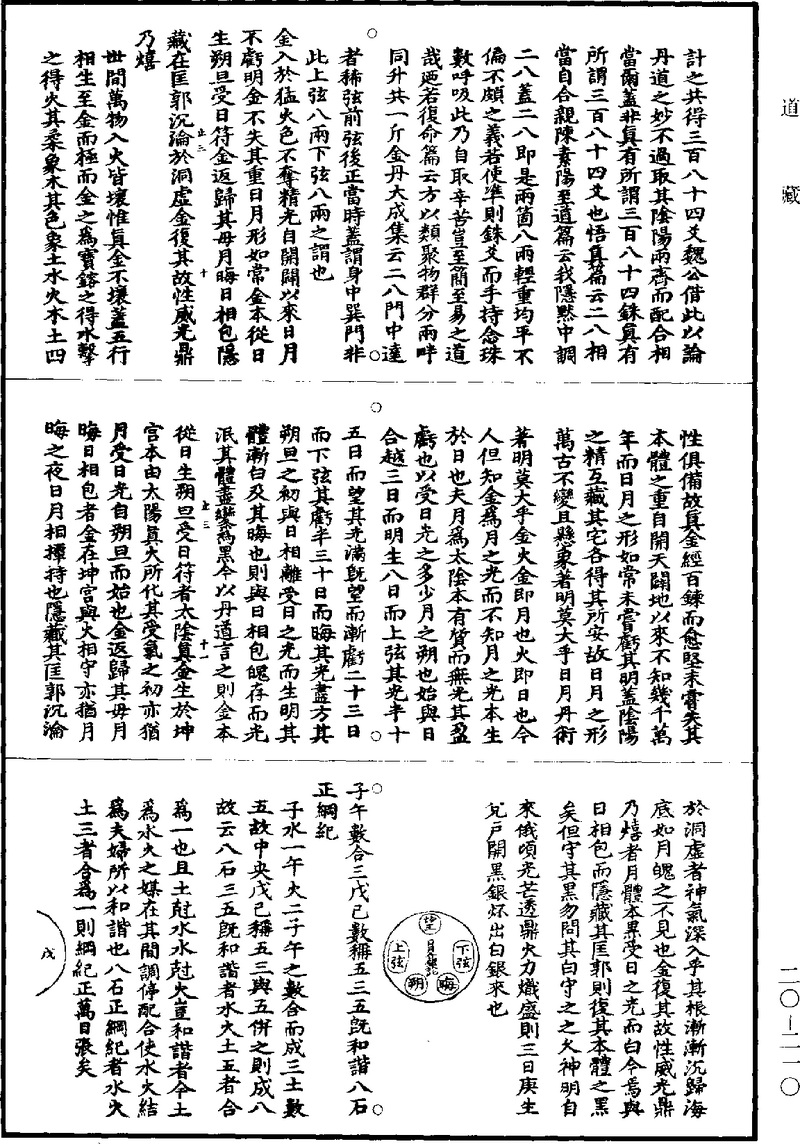 道藏
計之共得三百八十四爻魏公借此以論
丹道之妙不過取其陰陽兩齊而配合相
當爾蓋非真有所謂三百八十四銖真有
所謂三百八十四爻也悟真篇云二八相
當自合親陳素陽至道篇云我隱黙中調
二八蓋二八即是兩箇八兩輕重均平不
偏不頗之義若使準則銖爻而手持念珠
數呼吸此乃自取辛苦豈至簡至易之道
哉廼若復命篇云方以類聚物群分兩畔
同升共一斤金丹大成集云二八門中達
者稀弦前弦後正當時蓋謂身中巽門非
此上弦八兩下弦八兩之謂也
金入於猛火色不奪精光自開闢以來日月
不虧明金不失其重日月形如常金本從日
生朔旦受日符金返歸其母月晦日相包隱
藏在匡郭沉淪於洞虛金復其故性威光鼎
乃熺
世間萬物入火皆壞惟真金不壞蓋五行
相生至金而極而金之爲寶鎔之得水擊
之得火其柔象木其色象土水火木土四
性俱備故真金經百鍊而愈堅未嘗失其
本體之重自開天闢地以來不知幾千萬
年而日月之形如常未嘗虧其明蓋陰陽
之精互藏其宅各得其所安故日月之形
萬古不變且懸象著明莫大乎日月丹術
著明莫大乎金火金即月也火即日也今
人但知金爲月之光而不知月之光本生
於日也夫月爲太陰本有質而無光其盈
虧也以受日光之多少月之朔也始與日
合越三日而明生八日而上弦其光半十
五日而望其光滿旣望而漸虧二十三日
而下弦其虧半三十日而晦其光盡方其
朔旦之初與日相離受日之光而生明其
體漸白及其晦也則與日相包魄存而光
泯其體盡變爲黑今以丹道言之則金本
從日生朔旦受日符者太陰真金生於坤
宮本由太陽真火所化其受氣之初亦猶
月受日光自朔旦而始也金返歸其母月
晦日相包者金在坤宮與火相守亦猶月
晦之夜日月相撢持也隱藏其匡郭沉淪
於洞虛者神氣深入乎其根漸漸沉歸海
底如月魄之不見也金復其故性威光鼎
乃熺者月體本黒受日之光而白今焉與
日相包而隱藏其匡郭則復其本體之黑
矣但守其黑勿問其白守之之久神明自
來俄頃光芒透鼎火力熾盛則三日庚生
兊戸開黑銀炋出白銀來也
望
上弦
下弦
朔
晦
子午數合三戊己數稱五三五旣和諧八石
正綱紀
子水一午火二子午之數合而成三土數
五故中央戊己稱五三與五併之則成八
故云八石三五旣和諧者水火土五者合
爲一也且土尅水水尅火豈和諧者今土
爲水火之媒在其間調停配合使水火結
爲夫婦所以和諧也八石正綱紀者水火
土三者合爲一則綱紀正萬目張矣
戊
止三
十
止三
十一
二〇—二一〇